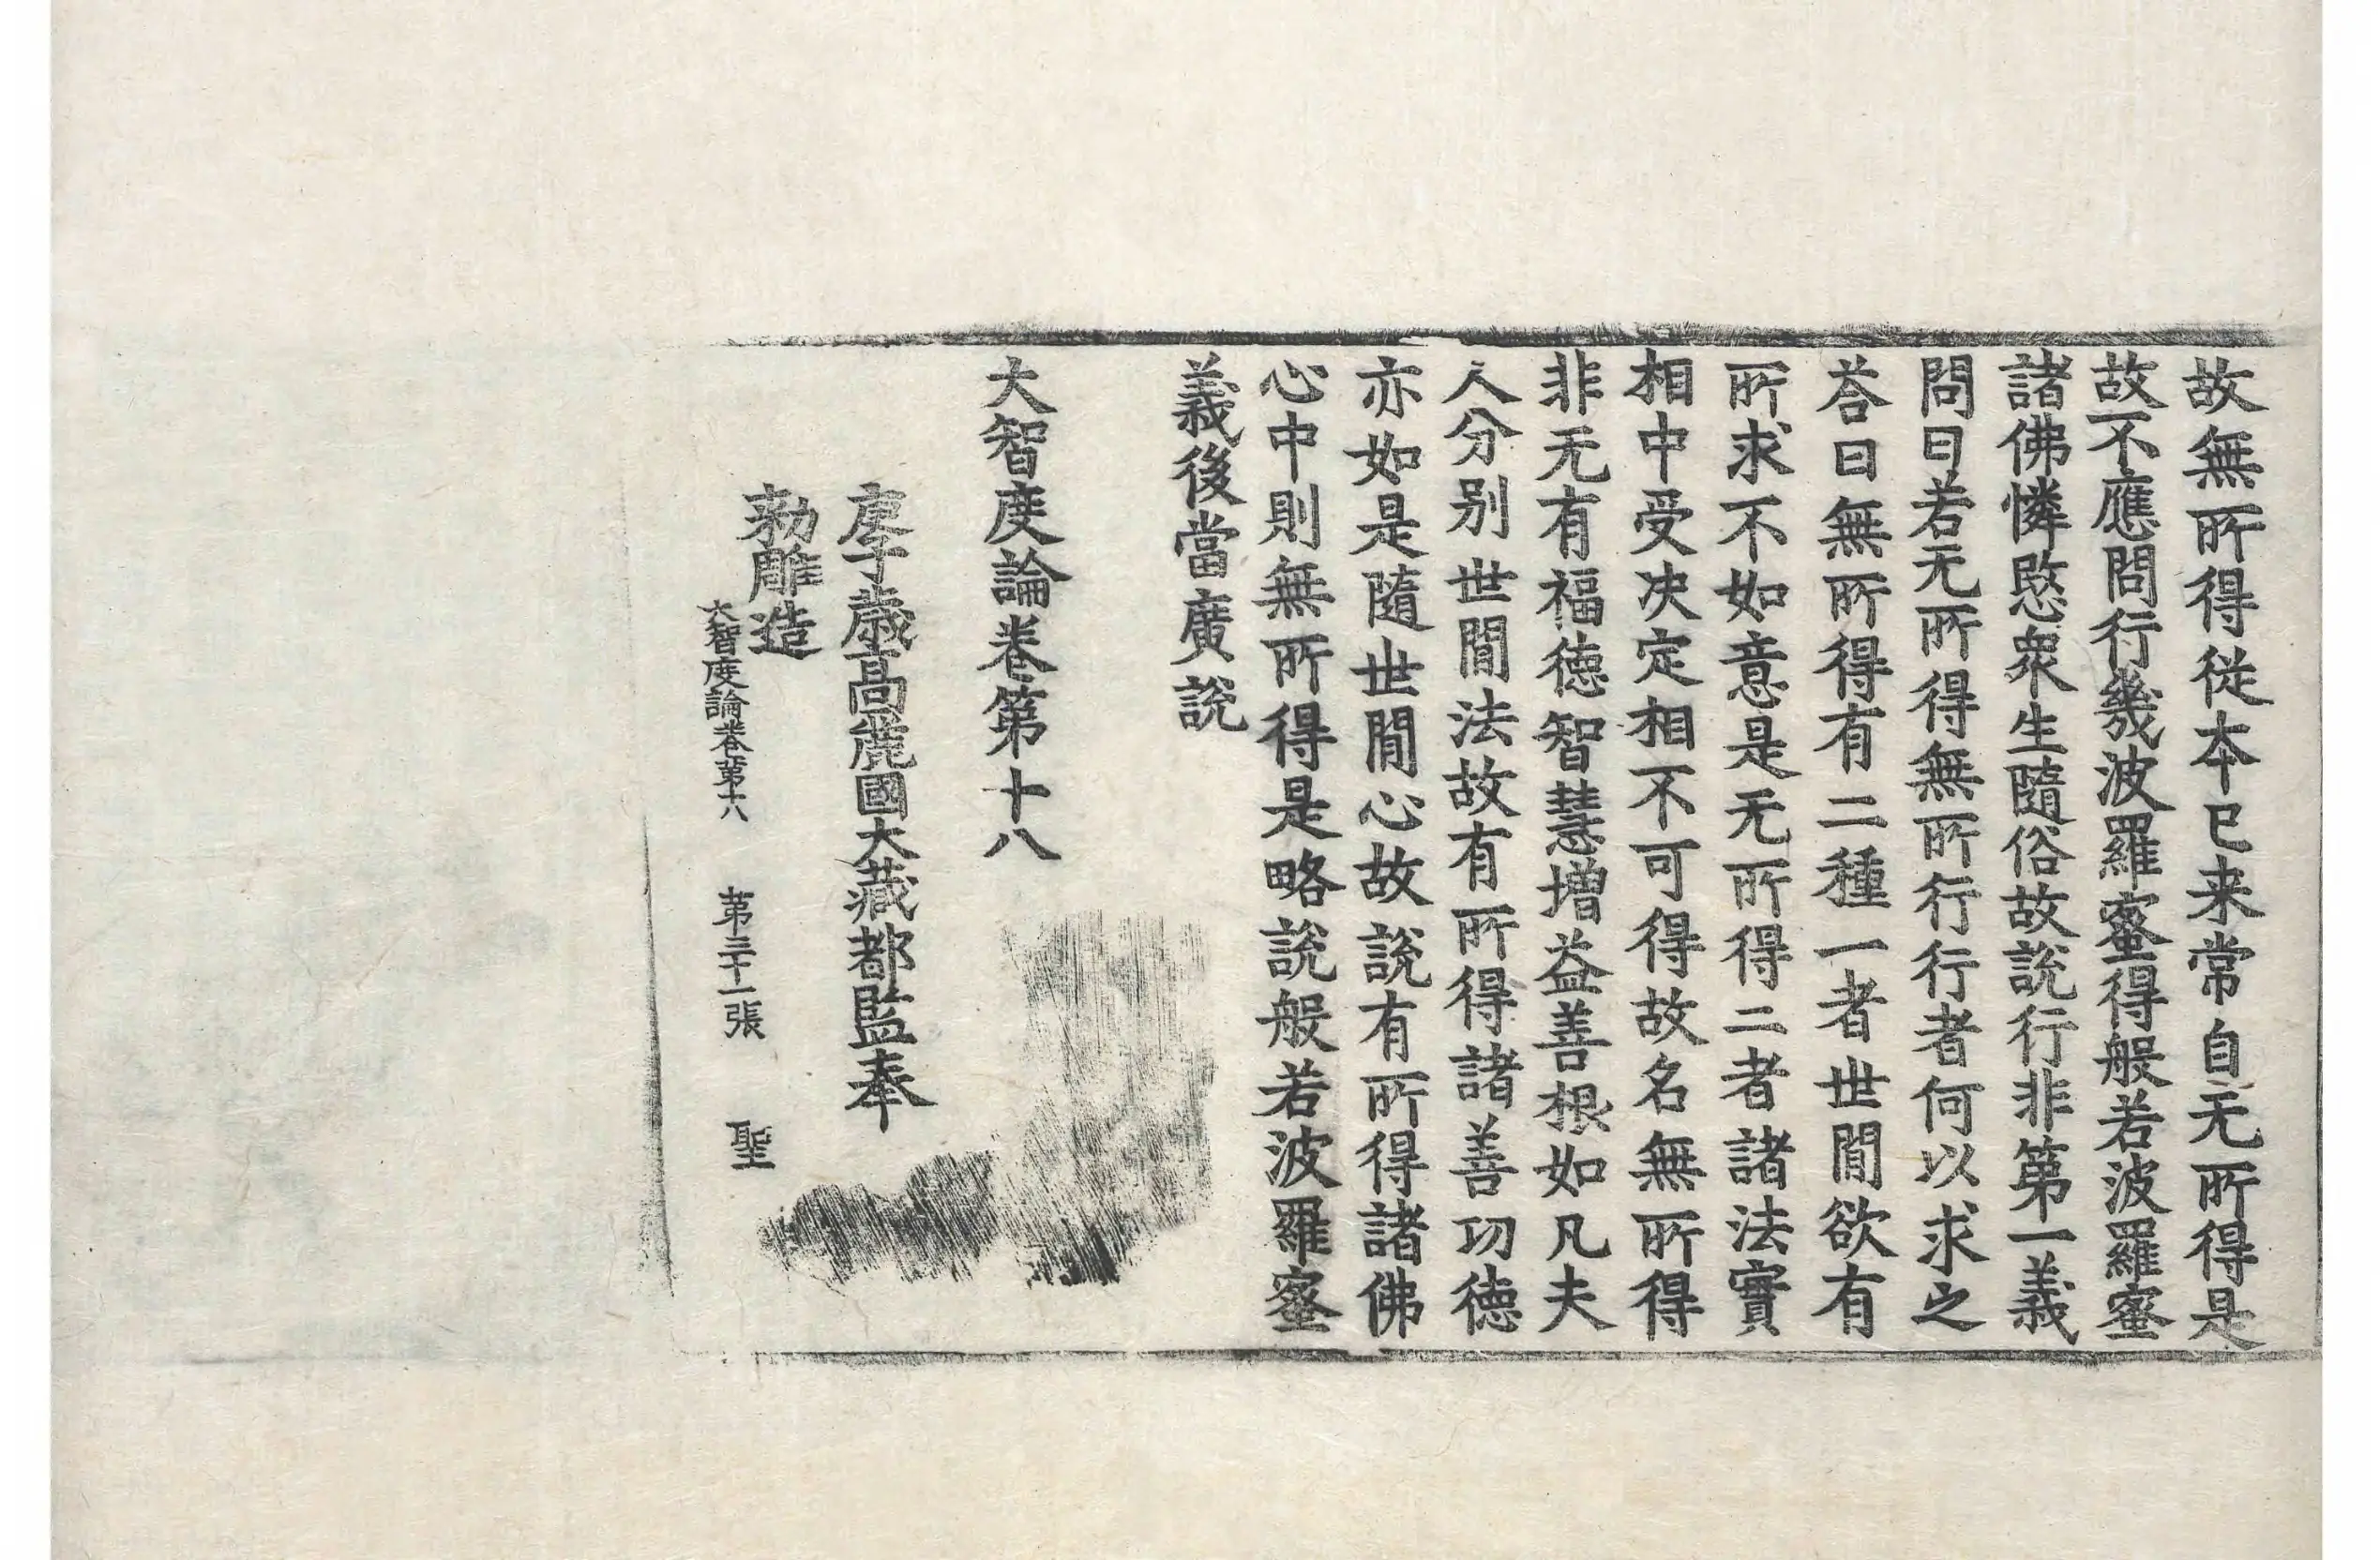 故無所得從本已来常自无所得是
故不應問行幾波羅蜜得般若波羅蜜
諸佛憐愍衆生隨俗故說行非第一義
問曰若无所得無所行行者何以求之
荅曰無所得有二種一者世間欲有
所求不如意是无所得二者諸法實
相中受决定相不可得故名無所得
非无有福德智慧增益善根如凡夫
人分别世間法故有所得諸善功德
亦如是隨世間心故說有所得諸佛
心中則無所得是略說般若波羅蜜
義後當廣說
大智度論卷第十八
庚子歲高麗國大藏都監奉
勑雕造
大智度論卷第十八 第三十一張 聖